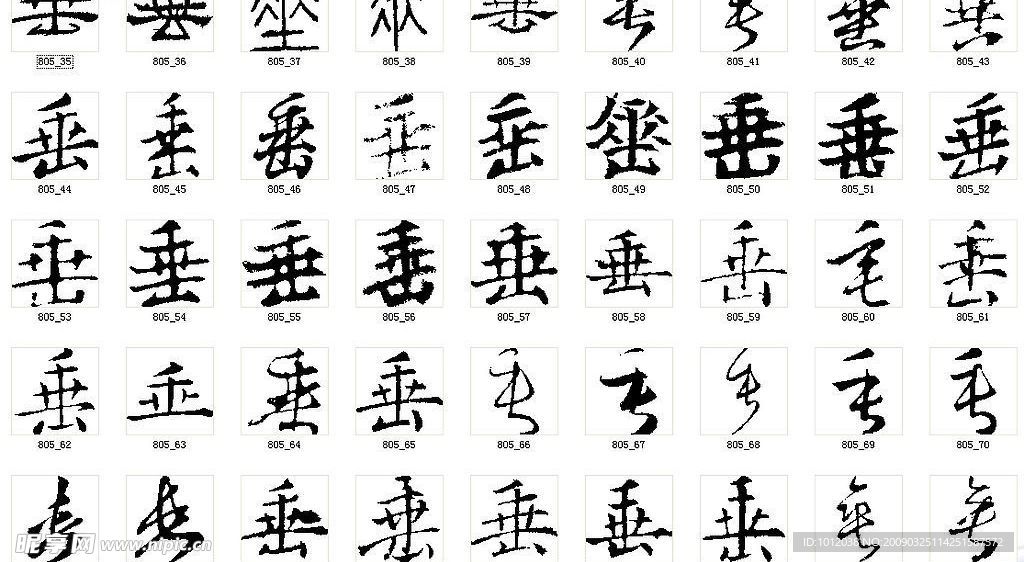 805_35 805_36 805_37 805_38 805_39 805_40 805_41 805_42 805_43
垂 垂 垂 垂 垂 垂 垂 垂 垂
805_44 805_45 805_46 805_47 805_48 805_49 805_50 805_51 805_52
垂 垂 垂 垂 垂 垂 垂 垂 垂
805_53 805_54 805_55 805_56 805_57 805_58 805_59 805_60 805_61
垂 垂 垂 垂 垂 垂 垂 垂 垂
805_62 805_63 805_64 805_65 805_66 805_67 805_68 805_69 805_70
垂 垂 垂 垂 垂
昵享网 www.nipic.cn
ID:1012038 NO:20090325114251587372